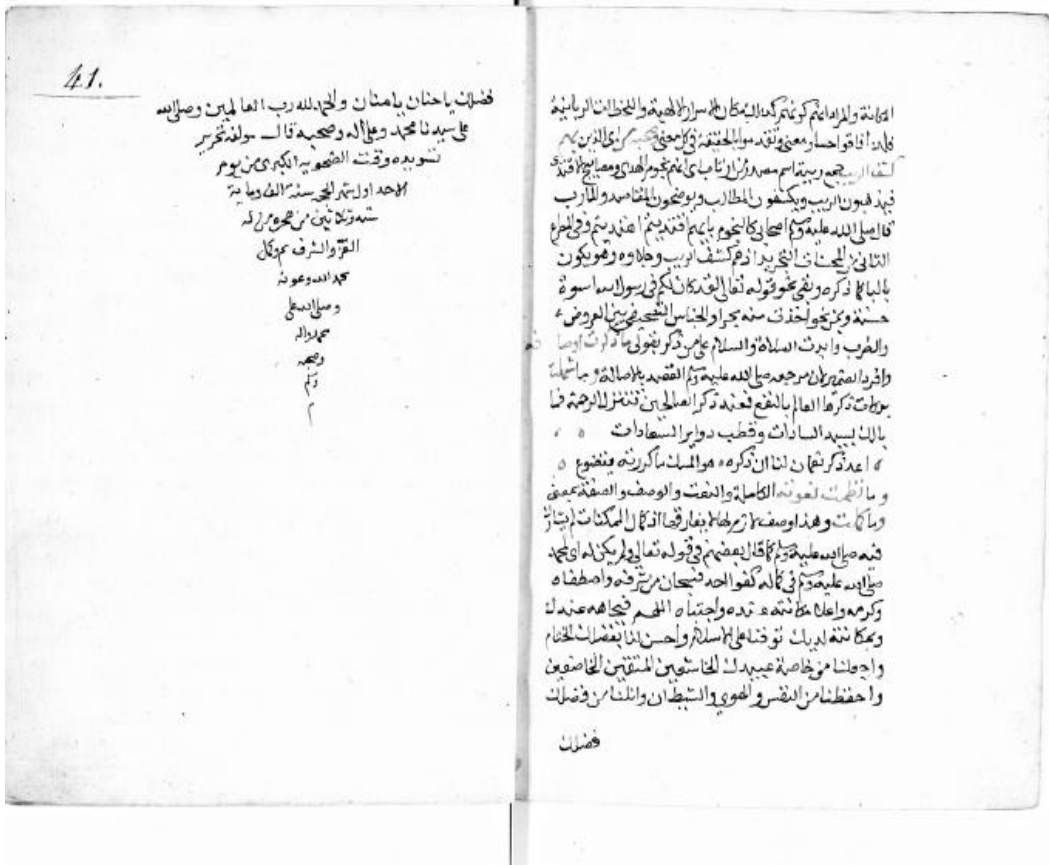 المكانة والمراد انهم كونهم كذلك مكان الاسرار الالهية واللحظات الربانية
فلهذا فاقوا حسا ومعنى
كشف الريب جمع ريبة اسم مصدر من ارتاب اي انهم نجوم الهدى ومصابيح الاقتدا
فيذهبون الريب ويكشفون المطالب ويوضحون المقاصد والمآرب
قال صلى الله عليه وسلم اصحابي كالنجوم بايهم اقتديتم اهتديتم وفي المصراع
الثاني من المحسنات التجريد اذ هم كشف الريب وجلاوه وهو يكون
بالباء كما ذكره وبفي نحو قوله تعالى لقد كان لكم في رسول الله اسوة
حسنة وبمن نحو اخذت منه بحرا والجناس التصحيفي بين العروض
والضرب وابدت الصلاة والسلام على من ذكر بقولي ما ذكرت اوصا
وافرد الضمير لان مرجعه صلى الله عليه وسلم القصد بالاصالة وما شملنا
بركات ذكرها العالم بالنفع فعند ذكر الصالحين تتنزل الرحمة فما
بالك بسيد السادات وقطب دواير السعادات
اعد ذكر نعمان لنا ان ذكره هو المسك ما كررته يتضوع
وما نظمت نعوته الكاملة والنعت والوصف والصفة بمعنى
وما كملت وهذا وصف لازم لها لا يفارقها اذ كمال الممكنات لم
فيه صلى الله عليه وسلم كما قال بعضهم في قوله تعالى ولم يكن له اي لمحمد
صلى الله عليه وسلم في كماله كفوا احد فسبحان من شرفه واصطفاه
وكرمه واعلا مكانته عنده واجتباه اللهم فبجاهه عندك
وبمكانته لديك توفنا على الاسلام واحسن لنا بفضلك الختام
واجعلنا من خاصة عبيدك الخاشعين المتقين الخاضعين
واحفظنا من النفس والهوى والشيطان وانلنا من فضلك
فضلك
41.
فضلك يا حنان يا منان والحمد لله رب العالمين وصلى الله
على سيدنا محمد وعلى آله وصحبه قال مولفه تحرير
تسويده وقت الضحوية الكبرى من يوم
الاحد اول شهر الحجة سنة الف وماية
ستة وثلاثين من هجرة من له
العز والشرف تم وكمل
بحمد الله وعونه
وصلى الله على
محمد واله
وصحبه
وسلم
م